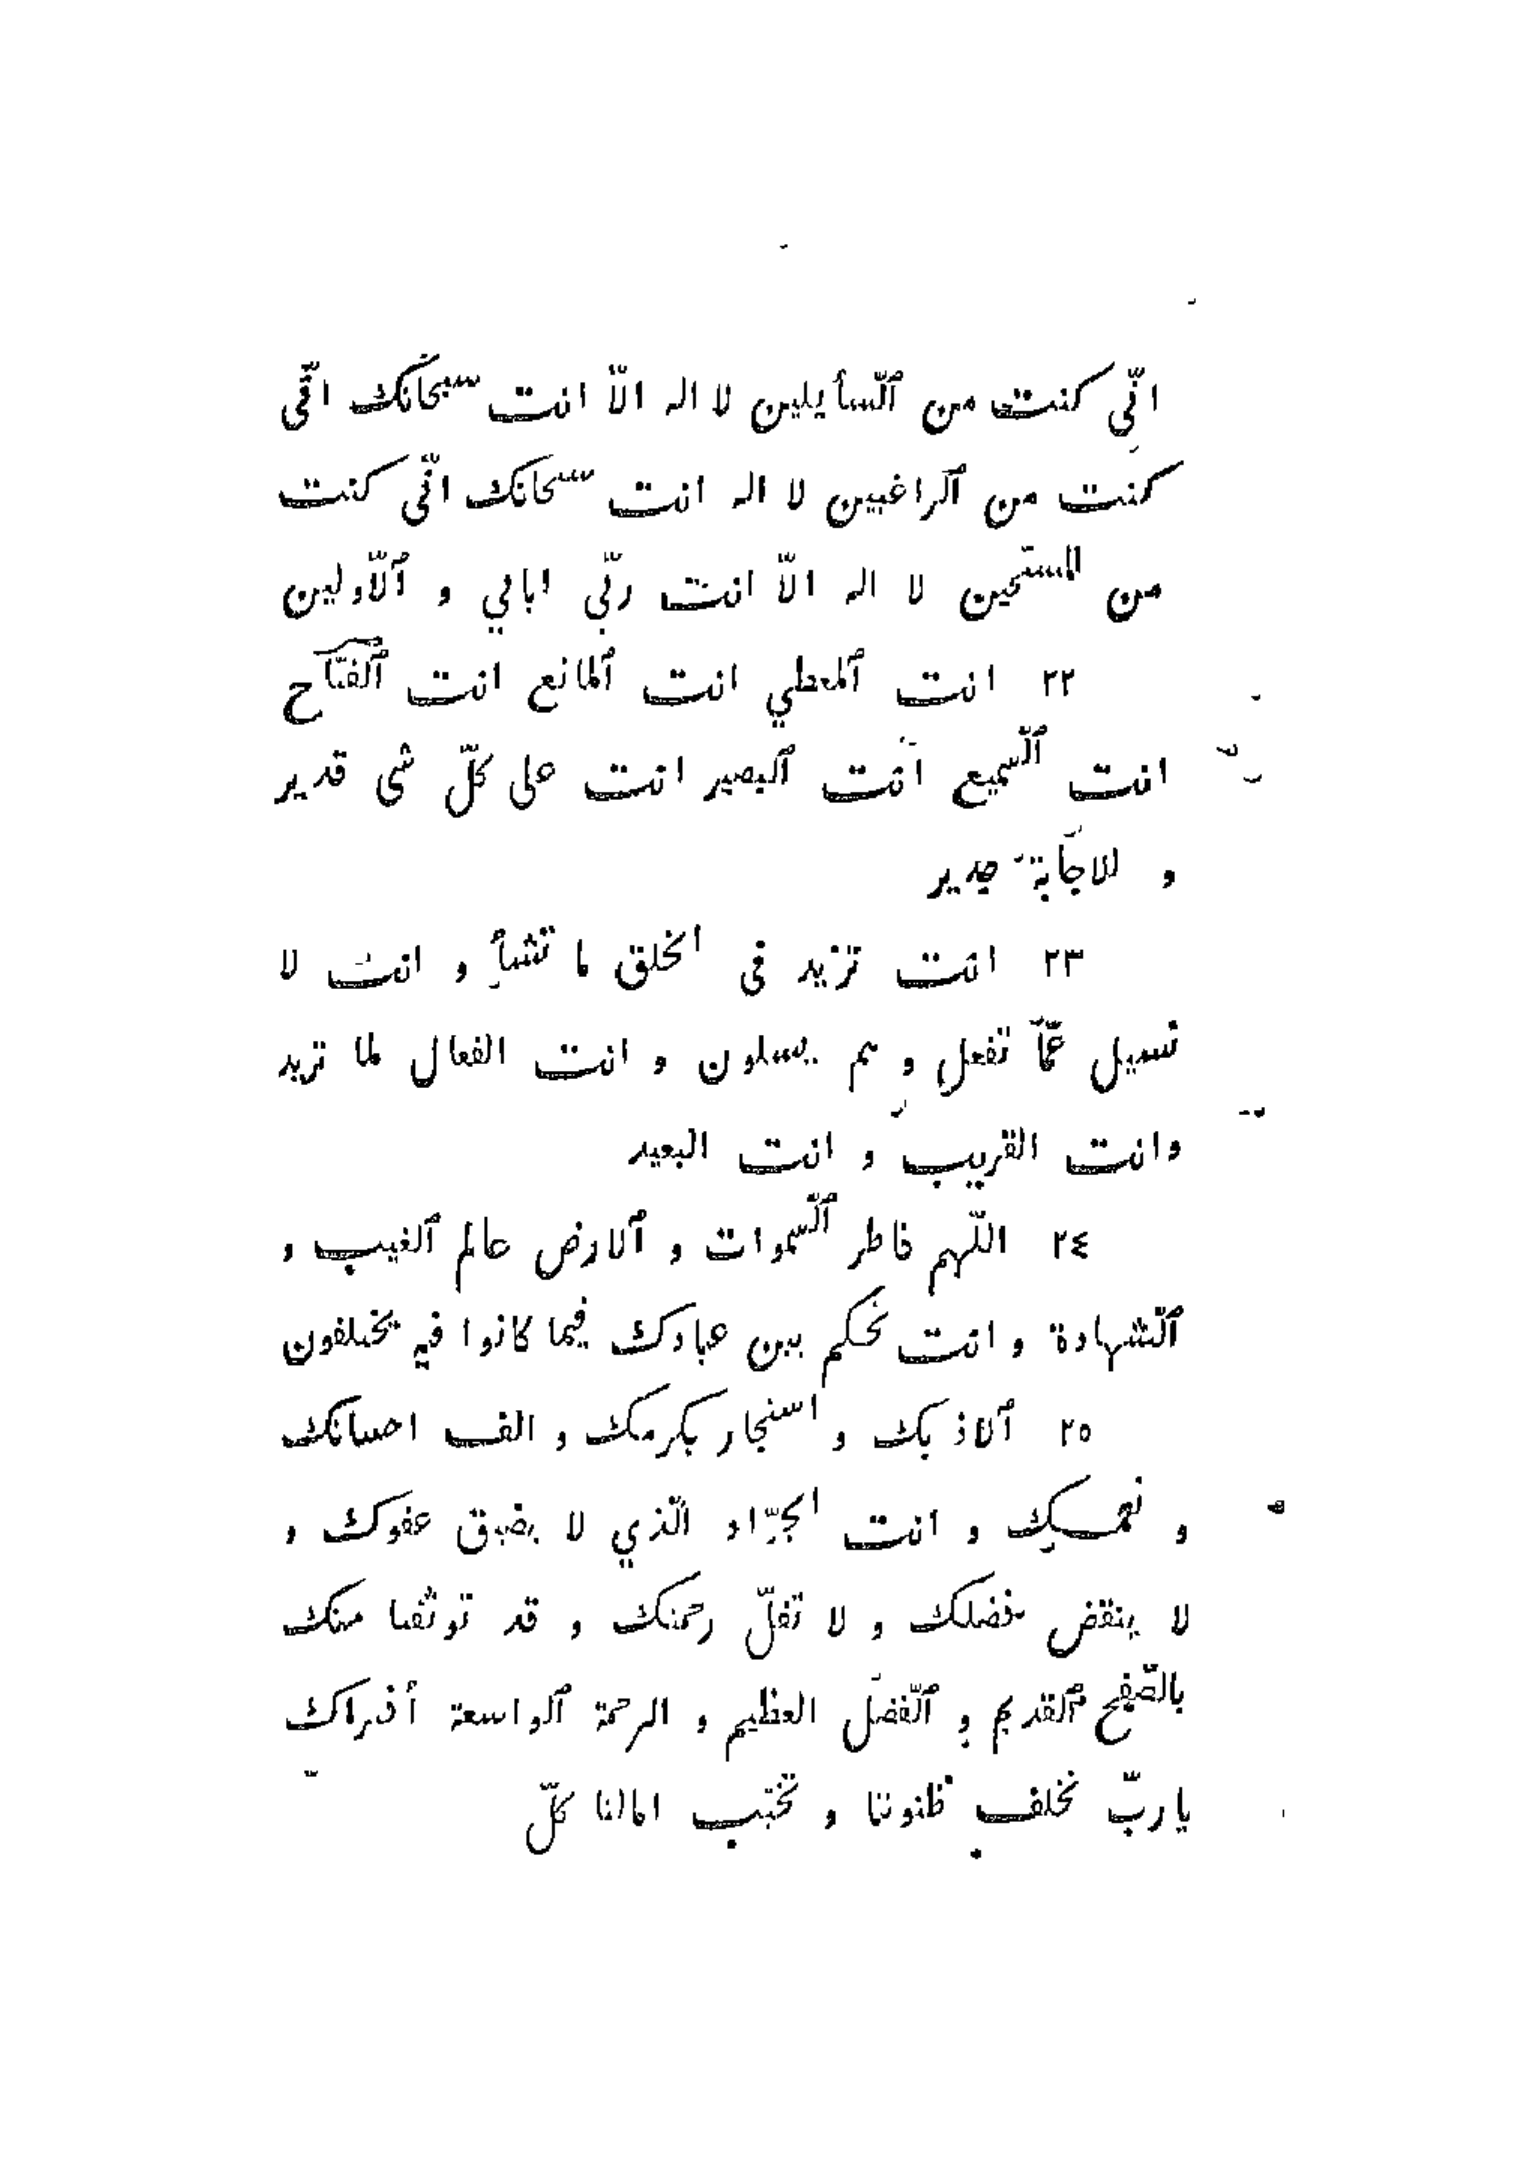 انّي كنت من ٱلسّأيلين لا اله الاّ انت سبحانك انّى
كنت من ٱلراغبين لا اله انت سبحانك انّى كنت
من المستحين لا اله الاّ انت ربّى ابايي و ٱلاّولين
٢٢ انت ٱلمعطي انت ٱلمانع انت ٱلفتّاح
انت ٱلسّميع انت ٱلبصير انت على كلّ شى قدير
و للاجابة جدير
٢٣ انت تزيد فى الخلق ما تشأ و انت لا
تسيل عمّا تفعل و هم يسلون و انت الفعال لما تريد
وانت القريب و انت البعيد
٢٤ اللّهم فاطر ٱلسّموات و ٱلارض عالم ٱلغيب و
ٱلشّهادة و انت تحكم بين عبادك فيما كانوا فيه يختلفون
٢٥ ٱلاذ بك و استجار بكرمك و الف احسانك
و نعمك و انت الجوّاد الّذي لا يضيق عفوك و
لا ينقض فضلك و لا تقلّ رحمتك و قد توثقنا منك
بالصّفح ٱلقديم و ٱلفضل العظيم و الرحمة ٱلواسعة أفتراك
يا ربّ تخلف ظنوننا و تخيّب امالنا كلّ